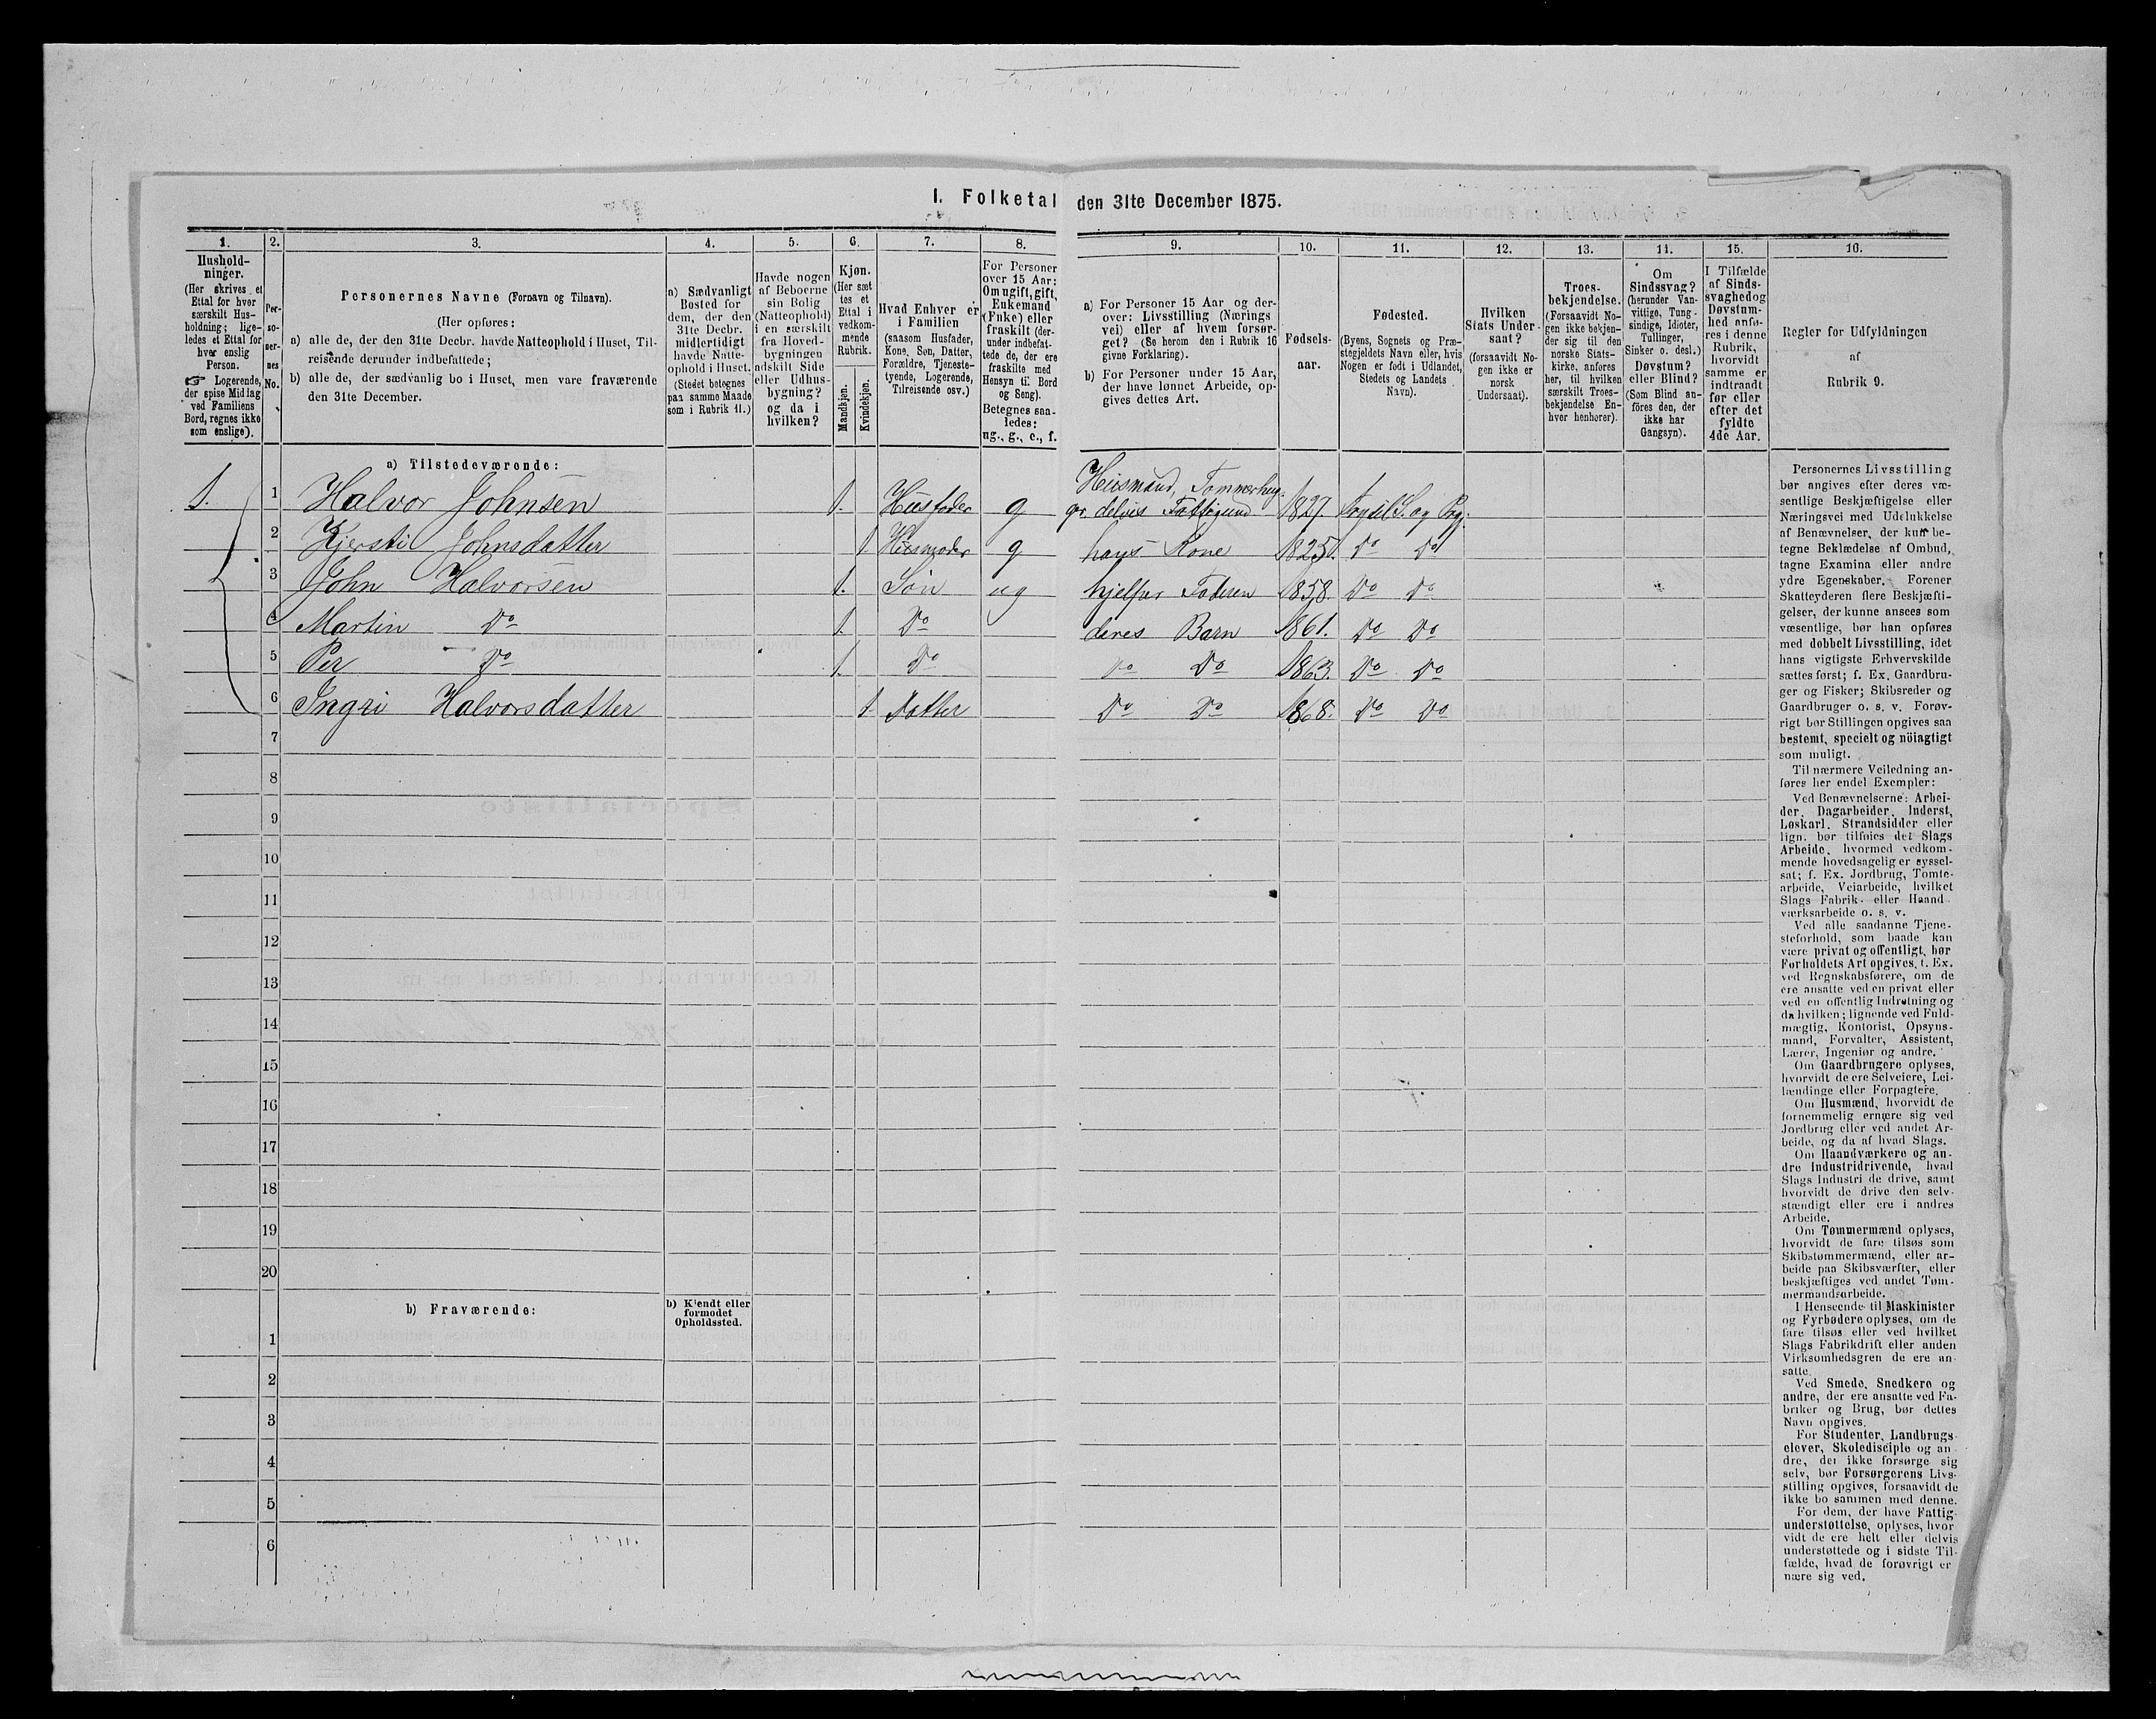 I. Folketal den 31te December 1875.
1. 2. 3. 4. 5. 6. 7. 8. 9. 10. 11. 12. 13. 14. 15. 16.
Hushold-
ninger.
(Her skrives et
Ettal for hver
særskilt Hus-
holdning; lige-
ledes et Ettal for
hver enslig
Person.
☞ Logerende,
der spise Middag
ved Familiens
Bord, regnes ikke
som enslige).
Per-
so-
ner-
nes
No.
Personernes Navne (Fornavn og Tilnavn).
(Her opføres:
a) alle de, der den 31te Decbr. havde Natteophold i Huset, Til-
reisende derunder indbefattede;
b) alle de, der sædvanlig bo i Huset, men vare fraværende
den 31te December.
a) Sædvanligt
Bosted for
dem, der den
31te Decbr.
midlertidigt
havde Natte-
ophold i Huset.
(Stedet betegnes
paa samme Maade
som i Rubrik 11.)
Havde nogen
af Beboerne
sin Bolig
(Natteophold)
i en særskilt
fra Hoved-
bygningen
adskilt Side
eller Udhus-
bygning?
og da i
hvilken?
Kjøn.
(Her sæt
tes et
Ettal i
vedkom-
mende
Rubrik.
Mandkjøn.
Kvindekjøn.
Hvad Enhver er
i Familien
(saasom Husfader,
Kone, Søn, Datter,
Forældre, Tjeneste-
tyende, Logerende,
Tilreisende osv.)
For Personer
over 15 Aar:
Om ugift, gift,
Enkemand
(Enke) eller
fraskilt (der-
under indbefat-
tede de, der ere
fraskilte med
Hensyn til Bord
og Seng).
Betegnes saa-
ledes:
ug., g., e., f.
a) For Personer 15 Aar og der-
over: Livsstilling (Nærings
vei) eller af hvem forsør-
get? (Se herom den i Rubrik 16
givne Forklaring).
b) For Personer under 15 Aar,
der have lønnet Arbeide, op-
gives dettes Art.
Fødsels-
aar.
Fødested.
(Byens, Sognets og Præ-
stegjeldets Navn eller, hvis
Nogen er født i Udlandet,
Stedets og Landets
Navn).
Hvilken
Stats Under-
saat?
(forsaavidt No-
gen ikke er
norsk
Undersaat).
Troes-
bekjendelse.
(Forsaavidt No-
gen ikke bekjen-
der sig til den
norske Stats-
kirke, anføres
her, til hvilken
særskilt Troes-
bekjendelse En-
hver henhører).
Om
Sindssvag?
(herunder Van-
vittige, Tung-
sindige, Idioter,
Tullinger,
Sinker o. desl.)
Døvstum?
eller Blind?
(Som Blind an-
føres den, der
ikke har
Gangsyn).
I Tilfælde
af Sinds-
svaghed og
Døvstum-
hed anfø-
res i denne
Rubrik,
hvorvidt
samme er
indtraadt
før eller
efter det
fyldte
4de Aar.
Regler for Udfyldningen
af
Rubrik 9.
a) Tilstedeværende:
Husmand, Tømmerhug-
1. 1 Halvor Johnsen 1. Husfader g gr. delvis Fattigund 1827. Trysil S. og Pgj.
2 Kjersti Johnsdatter 1 Husmoder g hans Kone 1825. Do Do
3 John Halvorsen 1. Søn ug hjelper Faderen 1858. Do Do
4 Martin Do 1. Do deres Barn 1861. Do Do
5 Per Do 1. Do Do Do 1863. Do Do
6 Ingri Halvorsdatter 1. Datter Do Do 1868. Do Do
7
8
9
10
11
12
13
14
15
16
17
18
19
20
b) Fraværende:
b) Kjendt eller
formodet
Opholdssted.
1
2
3
4
5
6
Personernes Livsstilling
bør angives efter deres væ-
sentlige Beskjæftigelse eller
Næringsvei med Udelukkelse
af Benævnelser, der kun be-
tegne Beklædelse af Ombud,
tagne Examina eller andre
ydre Egenskaber. Forener
Skatteyderen flere Beskjæfti-
gelser, der kunne ansees som
væsentlige, bør han opføres
med dobbelt Livsstilling, idet
hans vigtigste Erhvervskilde
sættes først; f. Ex. Gaardbru-
ger og Fisker; Skibsreder og
Gaardbruger o. s. v. Forøv-
rigt bør Stillingen opgives saa
bestemt, specielt og nöiagtigt
som muligt.
Til nærmere Veiledning an-
føres her endel Exempler:
Ved Benævnelserne: Arbei-
der, Dagarbeider, Inderst,
Løskarl, Strandsidder eller
lign. bør tilføies det Slags
Arbeide, hvormed vedkom-
mende hovedsagelig er syssel-
sat; f. Ex. Jordbrug, Tomte-
arbeide, Veiarbeide, hvilket
Slags Fabrik- eller Haand-
værksarbeide o. s. v.
Ved alle saadanne Tjene-
steforhold, som baade kan
være privat og offentligt, bør
Forholdets Art opgives, t. Ex.
ved Regnskabsførere, om de
ere ansatte ved en privat eller
ved en offentlig Indretning og
da hvilken; lignende ved Fuld-
mægtig, Kontorist, Opsyns-
mand, Forvalter, Assistent,
Lærer, Ingeniør og andre.
Om Gaardbrugere oplyses,
hvorvidt de ere Selveiere, Lei-
lændinge eller Forpagtere.
Om Husmænd, hvorvidt de
fornemmelig ernære sig ved
Jordbrug eller ved andet Ar-
beide, og da af hvad Slags.
Om Haandværkere og an-
dre Industridrivende, hvad
Slags Industri de drive, samt
hvorvidt de drive den selv-
stændigt eller ere i andres
Arbeide.
Om Tømmermænd oplyses,
hvorvidt de fare tilsøs som
Skibstømmermænd, eller ar-
beide paa Skibsværfter, eller
beskjæftiges ved andet Tøm-
mermandsarbeide.
I Henseende til Maskinister
og Fyrbødere oplyses, om de
fare tilsøs eller ved hvilket
Slags Fabrikdrift eller anden
Virksomhedsgren de ere an-
satte.
Ved Smede, Snedkere og
andre, der ere ansatte ved Fa-
briker og Brug, bør dettes
Navn opgives.
For Studenter, Landbrugs-
elever, Skoledisciple og an-
dre, der ikke forsørge sig
selv, bør Forsørgerens Livs-
stilling opgives, forsaavidt de
ikke bo sammen med denne.
For dem, der have Fattig-
understøttelse, oplyses, hvor
vidt de ere helt eller delvis
understøttede og i sidste Til-
fælde, hvad de forøvrigt er
nære sig ved.